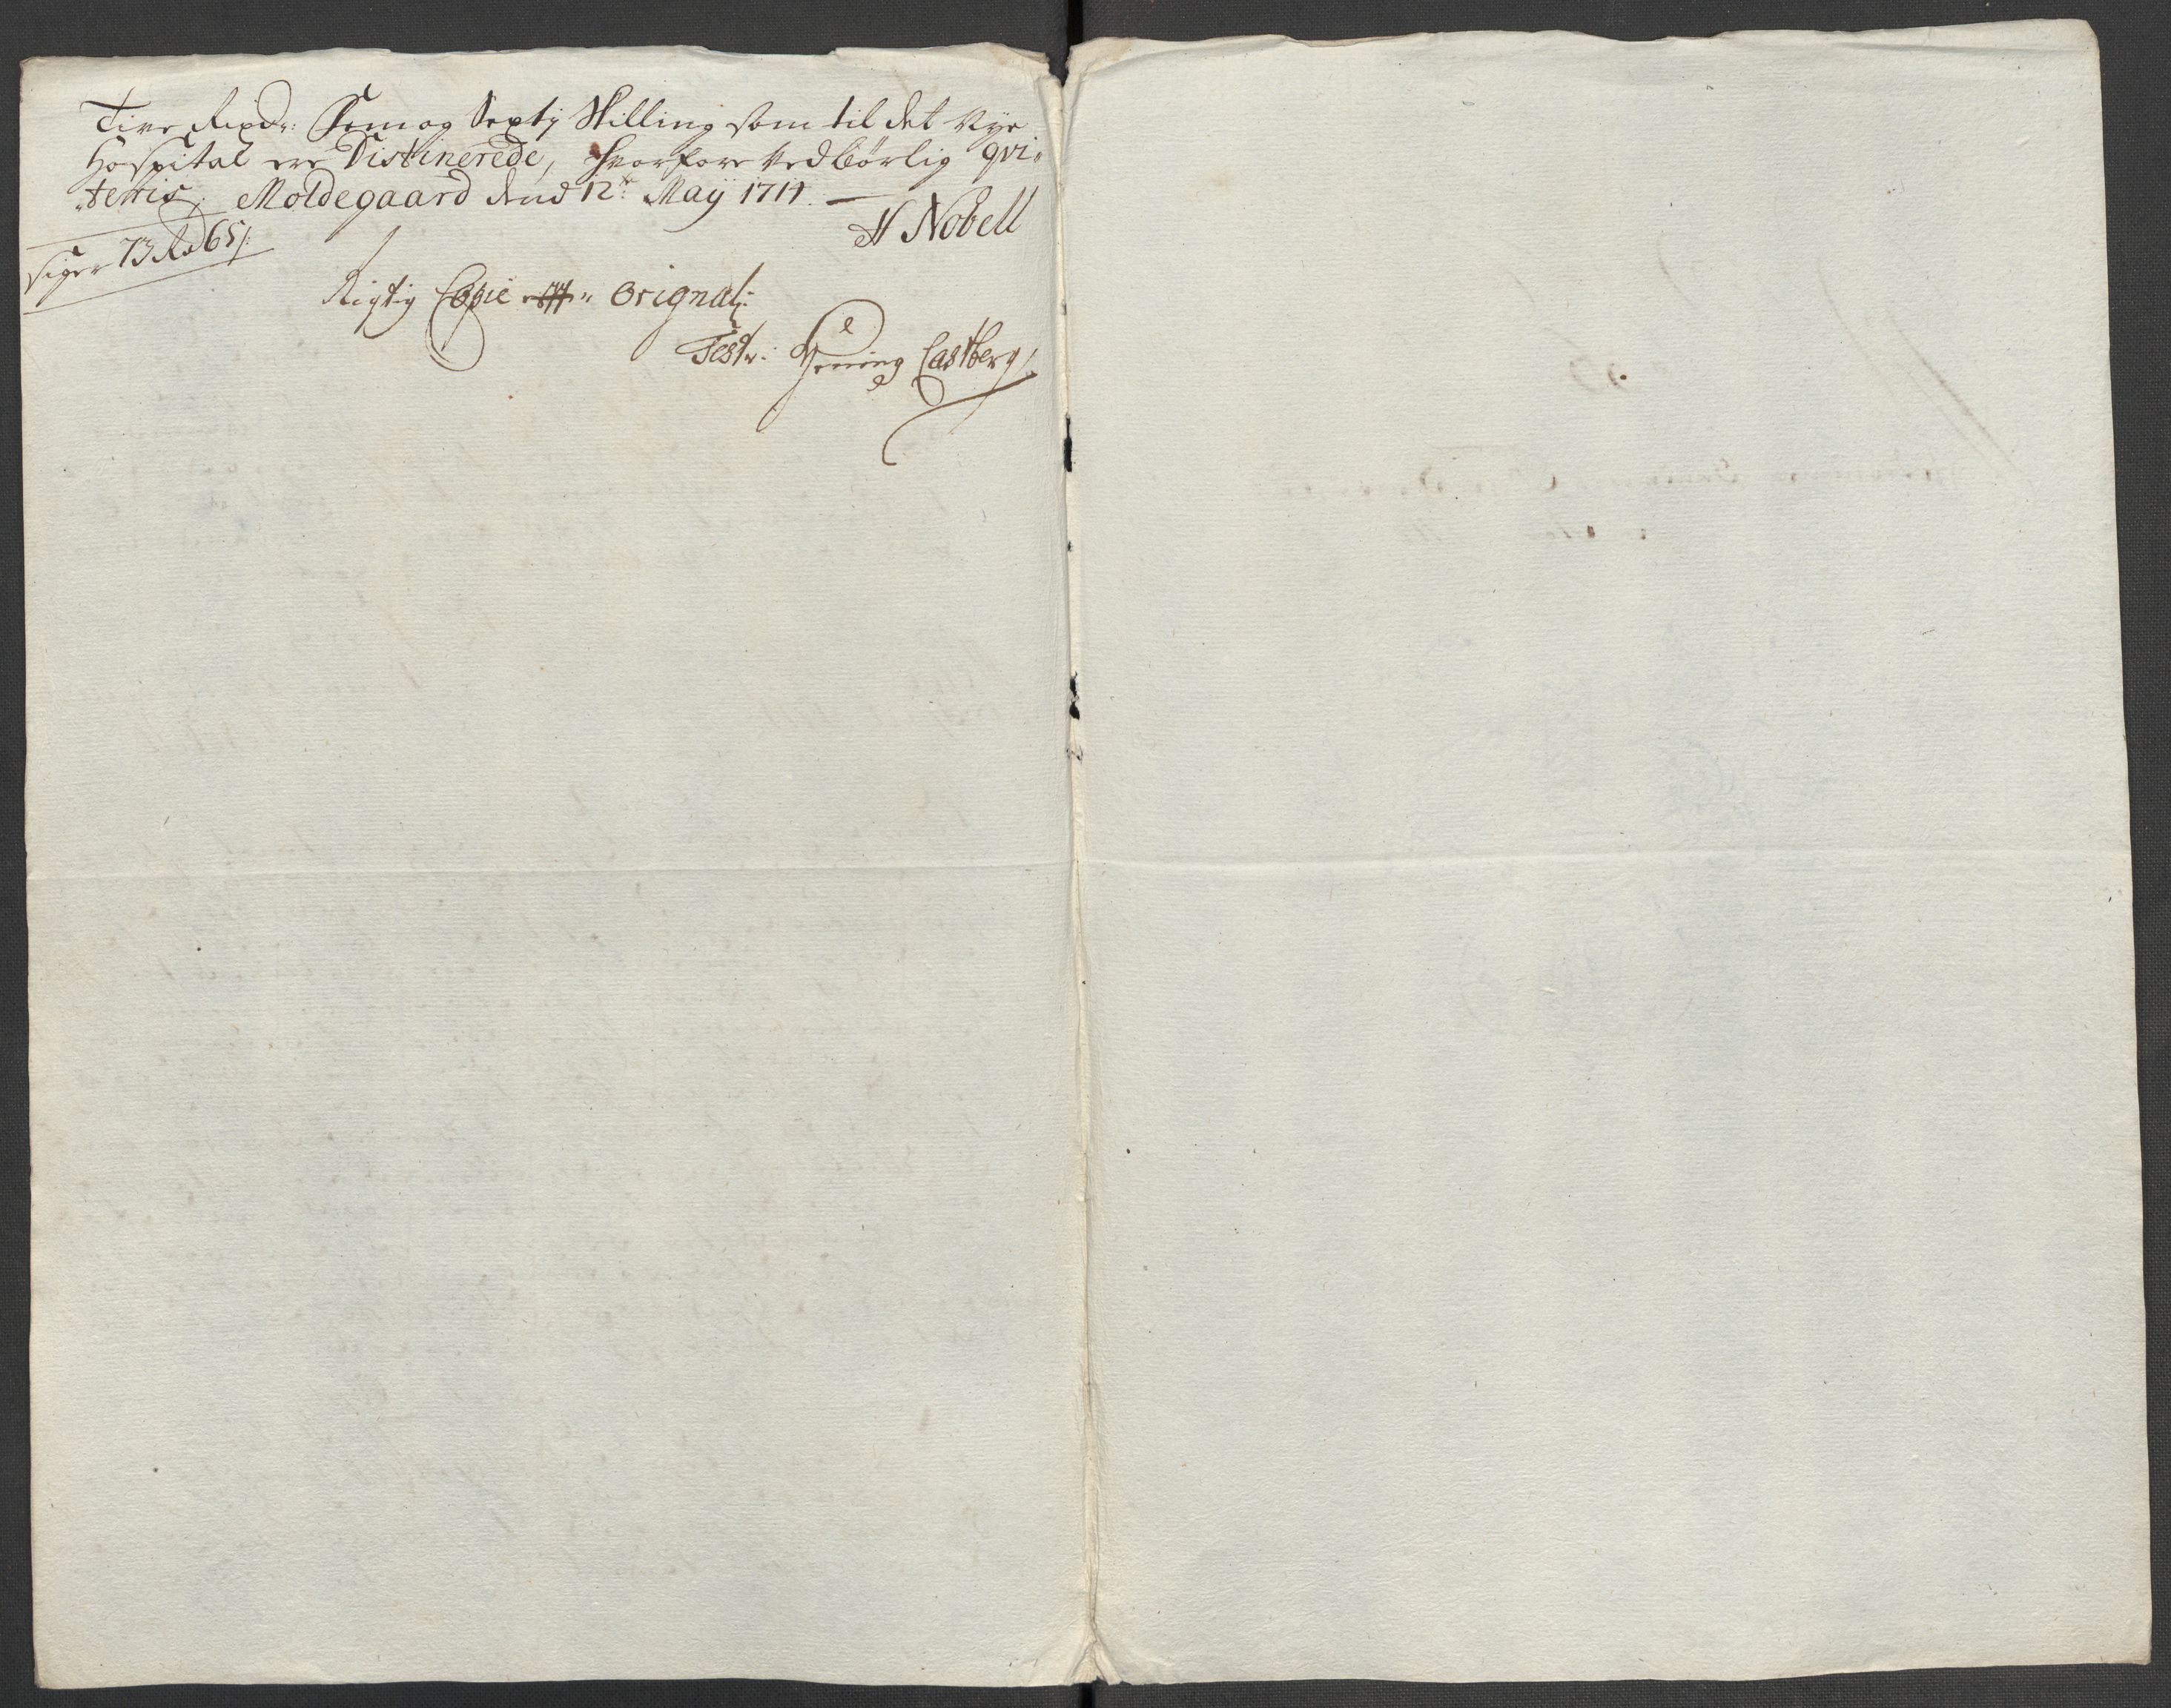 Tive Rixdr: Fem og Sexty Skilling som til det Nye
Hospital ere Distinerede, hvorfore vedbørlig qvi-
teris, Moldegaard dend 12te May 1711.
H Nobell
siger 73 Rd 65 s:
Rigtig Copie efter Orignal:
Test: Henning Castberg